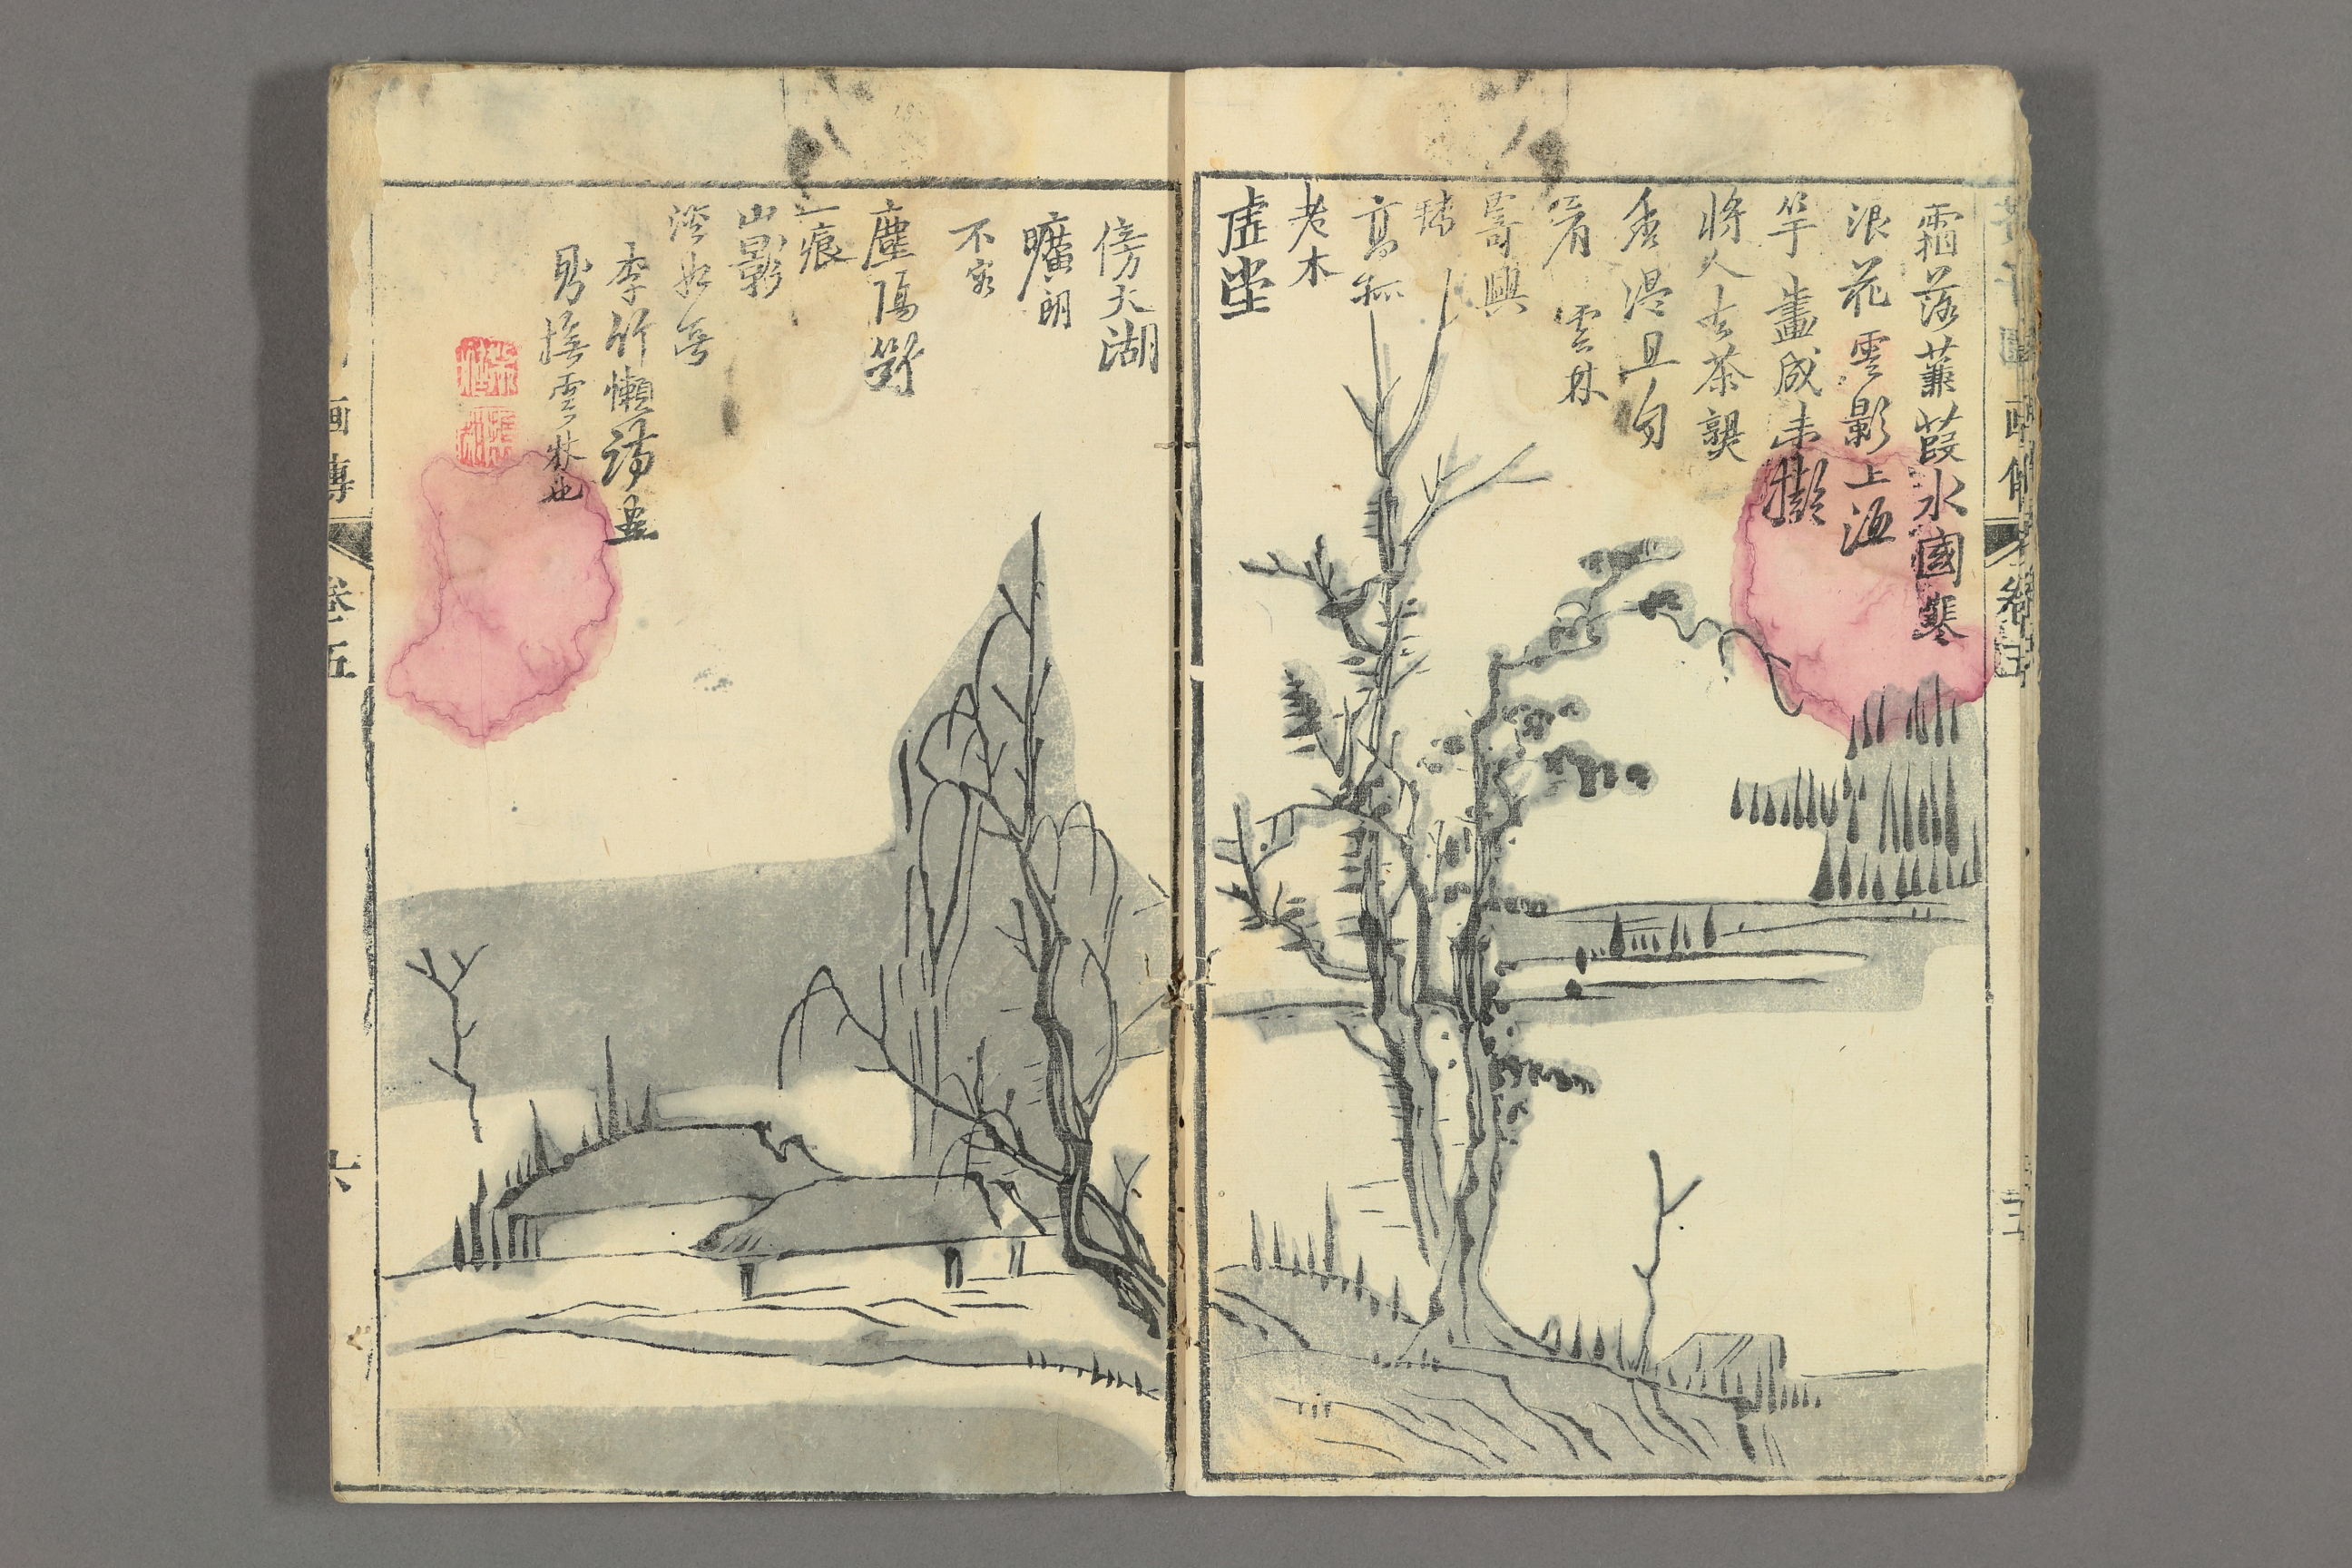 霜落蒹葭水國寒
浪花雲影上漁
竿畫成未擬
將人去茶熟
香溫且自
看 雲林
寄興
老木
虛堂
傍大湖
曠朗
不容
塵隔斷
一痕
山影
淡如無
李竹懶詩畫
卷五
畫傳
卷五
六